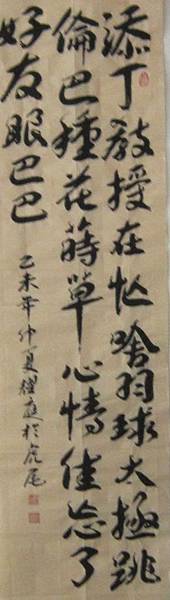 添丁教授在忙啥羽球太極跳
倫巴種花蒔草心情佳忘了
好友眼巴巴
乙未年仲夏耀庭於虎尾